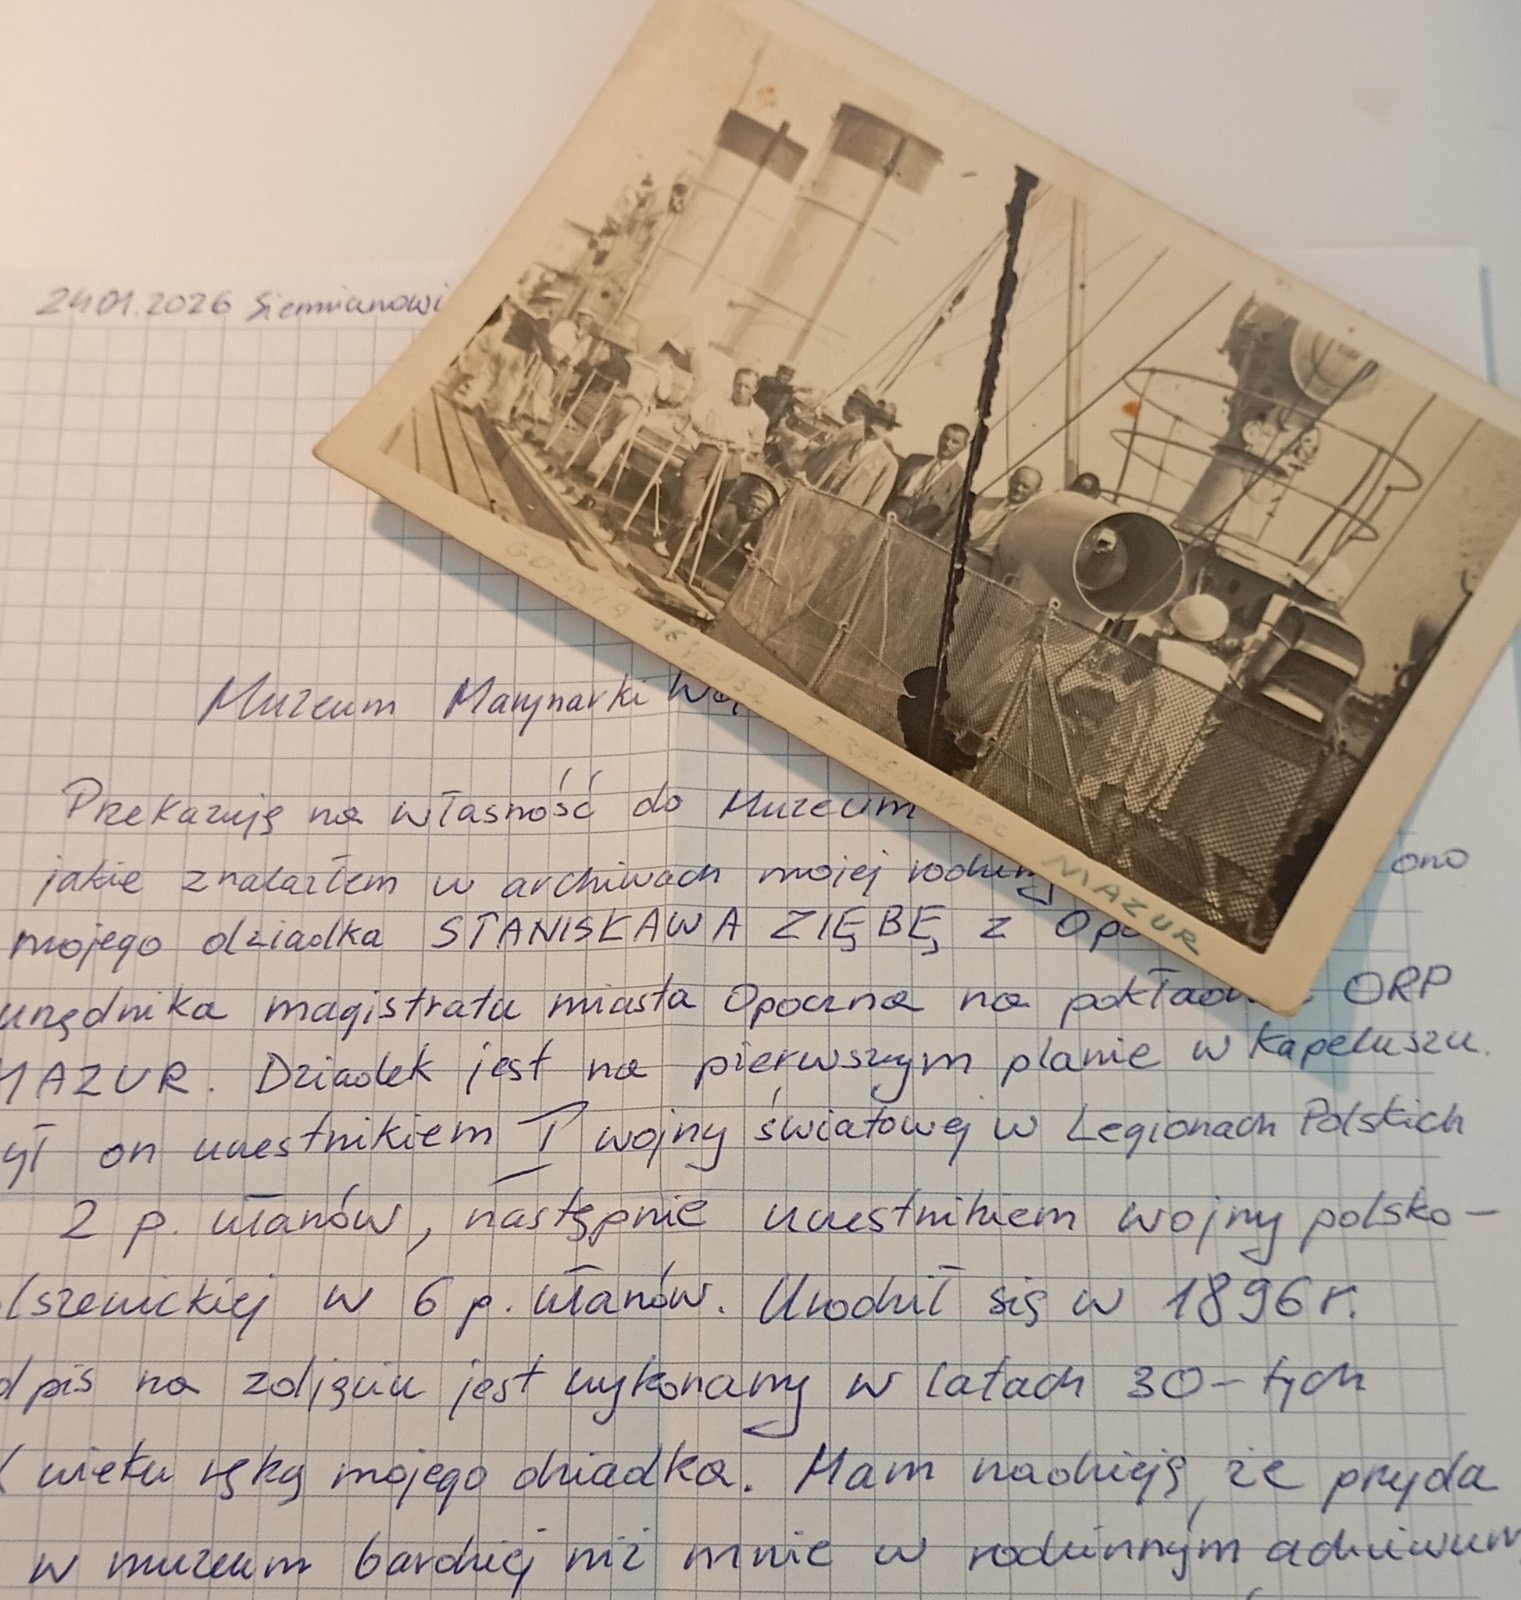 24.01.2026 Siemianowi
Muzeum Marynarki Woj
Przekazuję na własność do Muzeum
jakie znalazłem w archiwach mojej rodziny ono
mojego dziadka STANISŁAWA ZIĘBĘ z Opo
urzędnika magistratu miasta Opoczna na pokładzie ORP
MAZUR. Dziadek jest na pierwszym planie w kapeluszu.
ył on uczestnikiem I wojny światowej w Legionach Polskich
2 p. ułanów, następnie uczestnikiem wojny polsko-
lszewickiej w 6 p. ułanów. Urodził się w 1896 r.
dpis na zdjęciu jest wykonany w latach 30-tych
X wieku ręką mojego dziadka. Mam nadzieję, że przyda
w muzeum bardziej niż mnie w rodzinnym archiwum
GDYNIA 1932 TORPEDOWIEC MAZUR